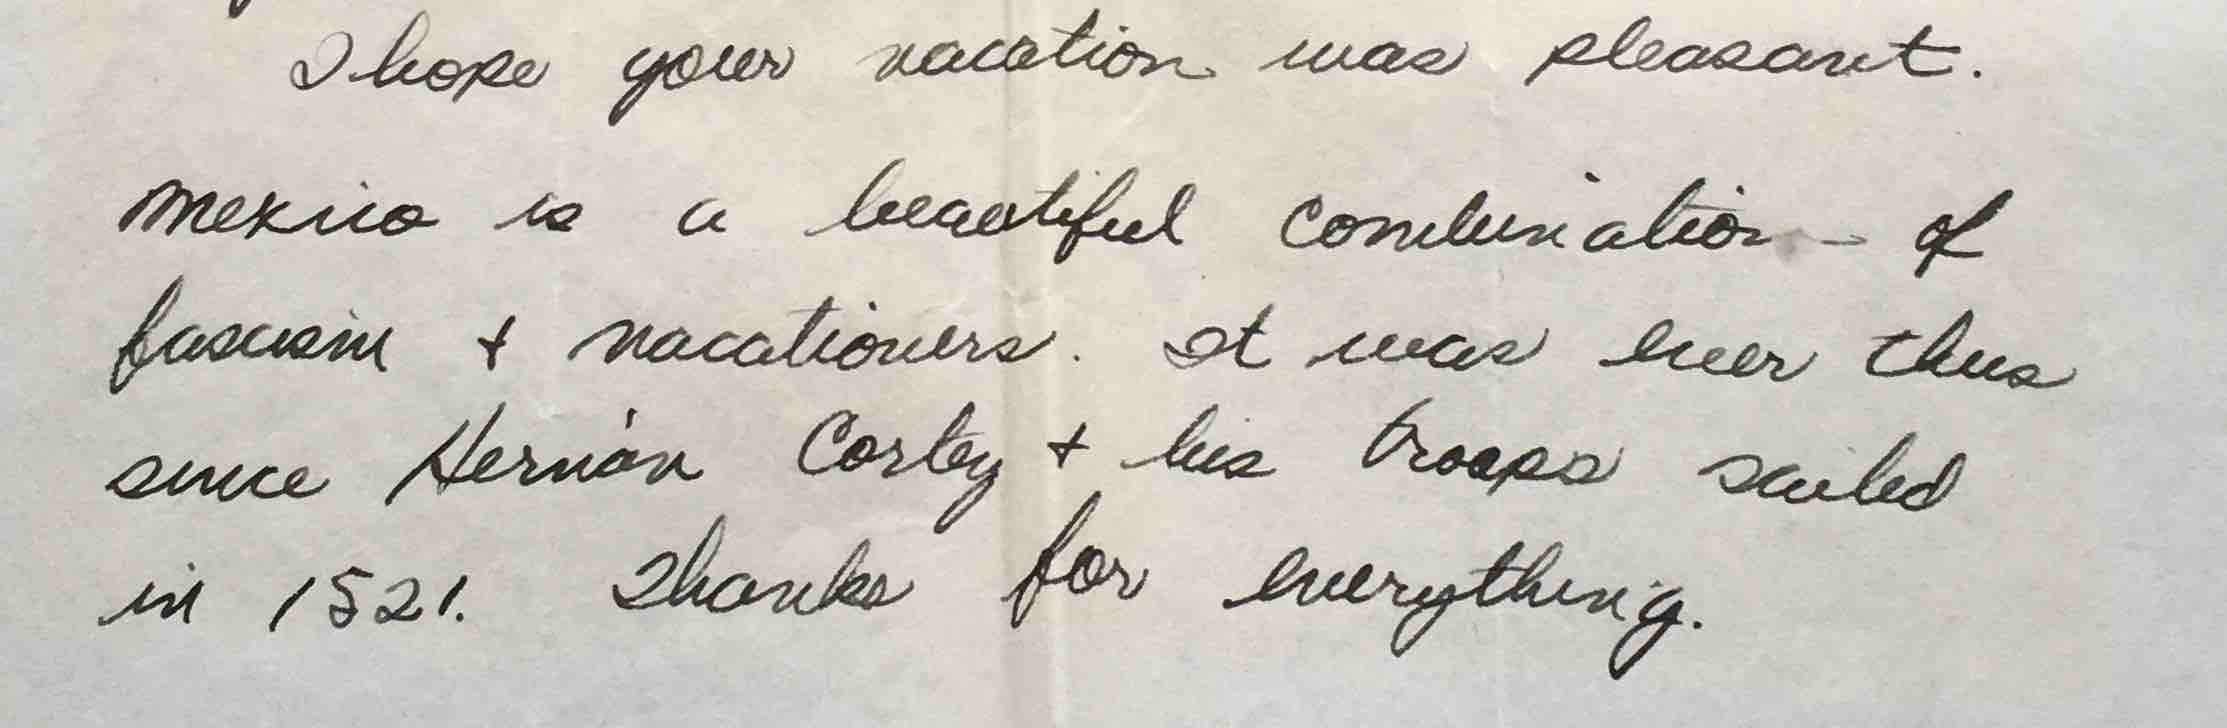 I hope your vacation was pleasant.
Mexico is a beautiful combination of
fascism + vacationers. It was ever thus
since Hernán Cortez + his troops sailed
in 1521. Thanks for everything.